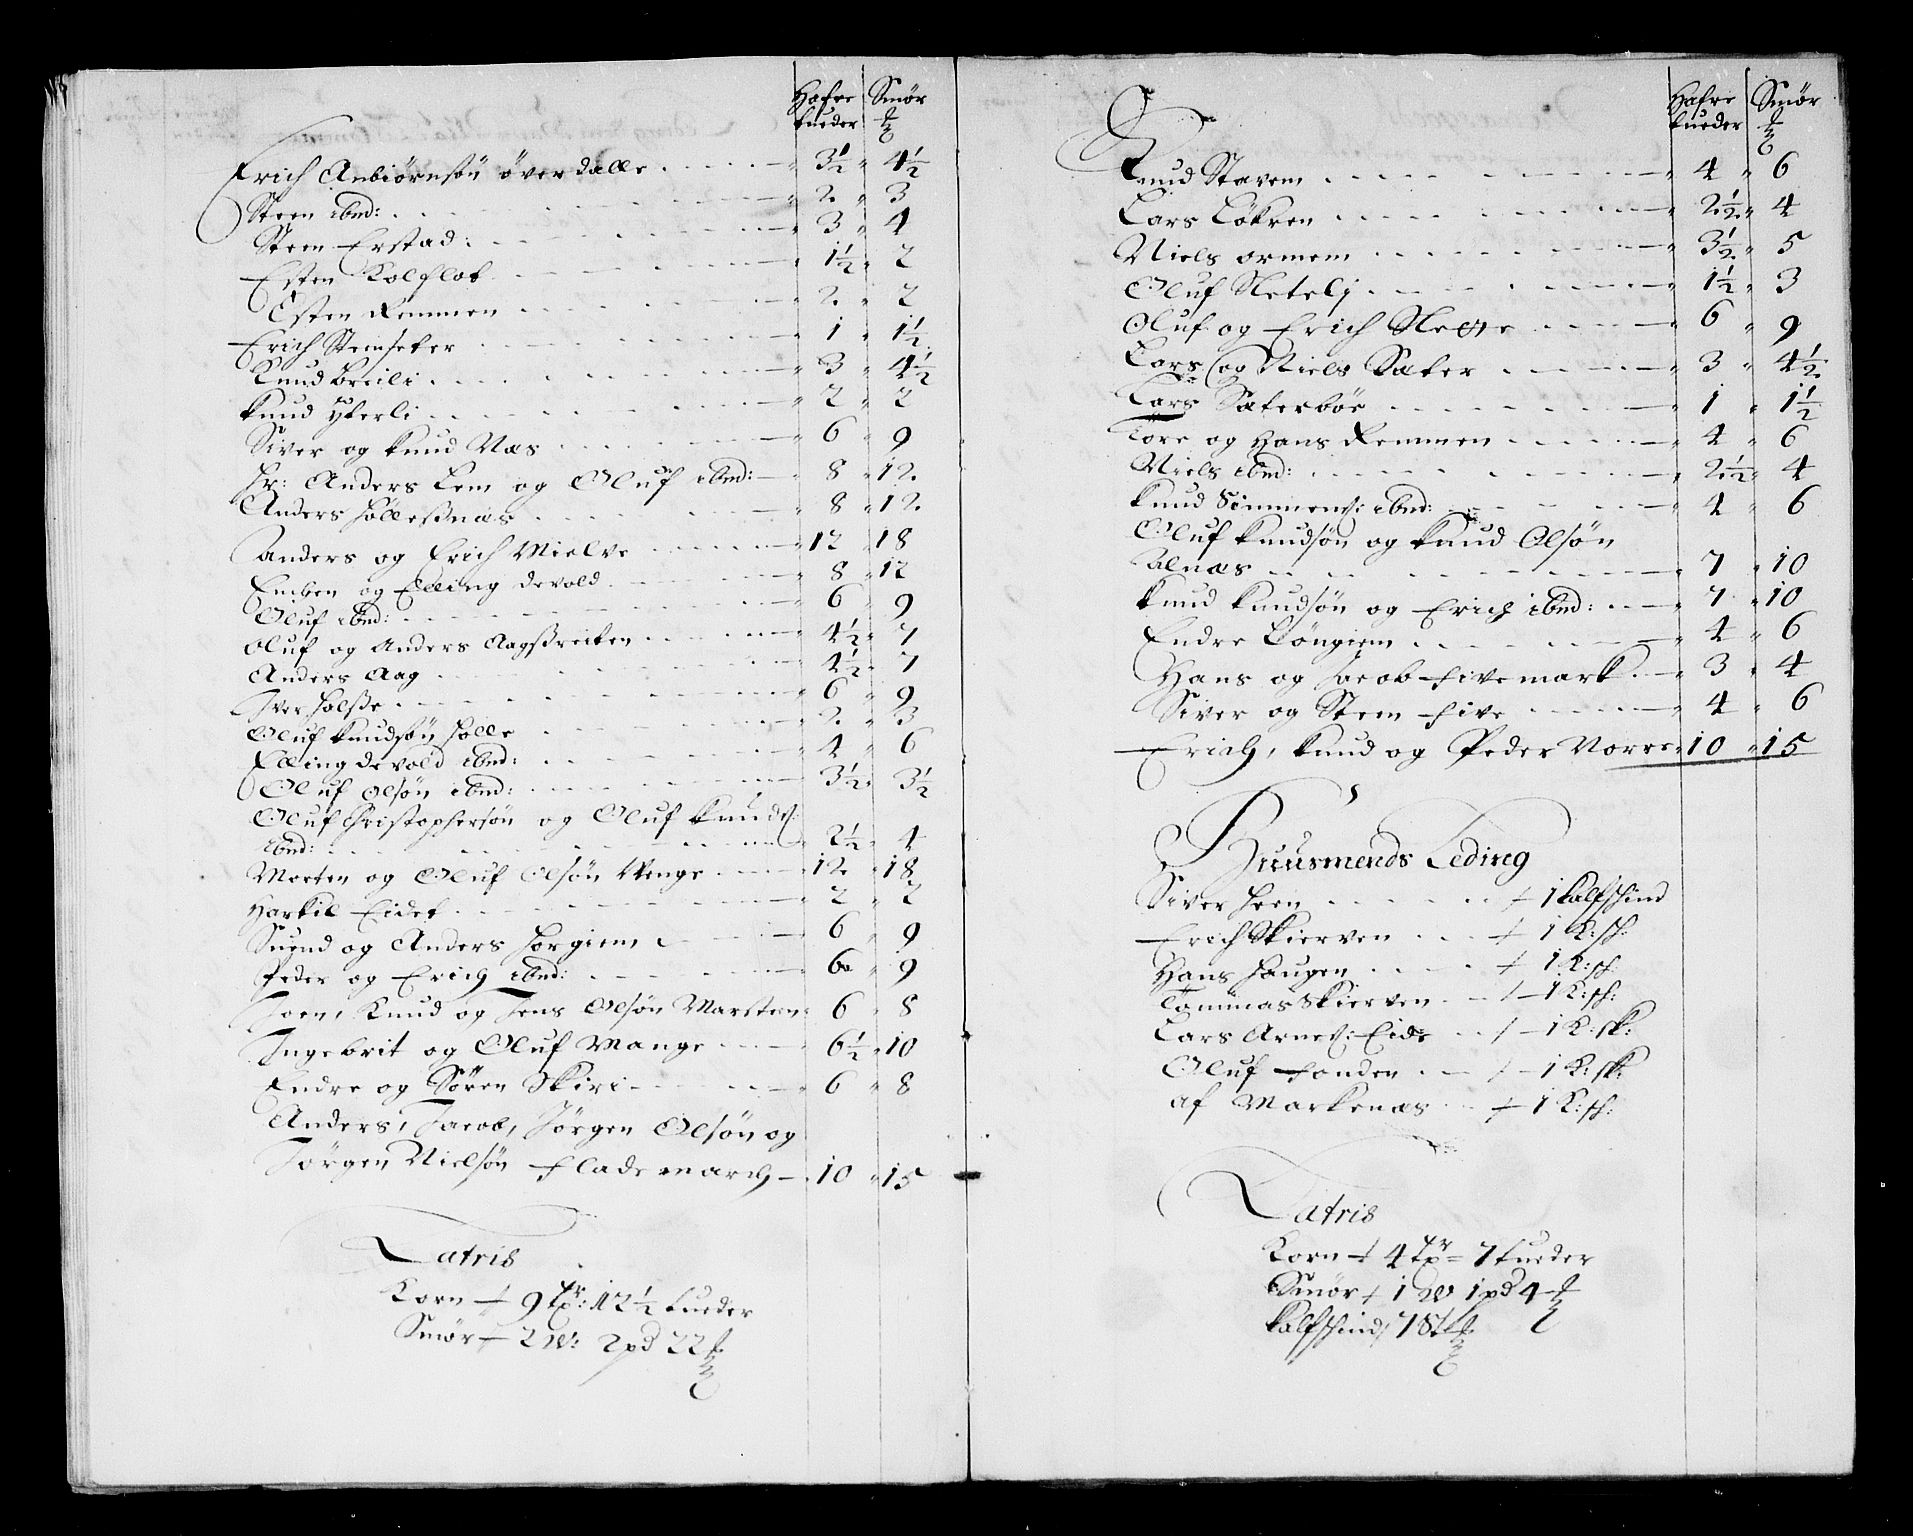 Hafre Smør
kueder ℔
Erich Anbiørnsøn överdalle 3½ 4½
Steen ibmd: 2 3
Steen Erstad: 3 4
Esten Kolflot 1½ 2
Esten Remmen 2 2
Erich Stemseter 1 1½
Knud Breili 3 4½
Knud Yterli 2 2
Siver og Knud Næs 6 9
Hr: Anders Lem og Oluf ibmd: 8 12
Anders Hølleßnæs 8 12
Anders og Erich Mielve 12 18
Emben og Elling devold 8 12
Oluf ibmd: 6 9
Oluf og Anders Aagßreiten 4½ 7
Anders Aag 4½ 7
Iver Holße 6 9
Oluf Knudsøn Holle 2 3
Elling devold ibmd: 4 6
Oluf Olsøn ibmd: 3½ 3½
Oluf Christophersøn og Oluf Knuds:
ibmd: 2½ 4
Morten og Oluf Olsøn Wenge 12 18
Harkil Eidet 2 2
Suynd og Anders Horgiem 6 9
Peder og Erich ibmd: 6 9
Joen, Knud og Jens Olsøn Marstein 6 8
Ingebrit og Oluf Mange 6½ 10
Endre og Søren Skiri 6 8
Anders, Jacob, Jørgen Olsøn og
Jørgen Nielsøn Flademarch 10 15
Latris
Korn 9 tr: 12½ kueder
Smør 2 W: 2 pd 22 ℔
Hafre Smør
kueder ℔
Knud Stavem 4 6
Lars Løkren 2½ 4
Niels ormem 3½ 5
Oluf Sletelj 1½ 3
Oluf og Erich Slette 6 9
Lars og Niels Sæter 3 4½
Lars Sæterbøe 1 1½
Tore og Hans Remmen 4 6
Niels ibmd: 2½ 4
Knud Simmens: ibmd: 4 6
Oluf Knudsøn og Knud Olsøn
Alnæs 7 10
Knud Knudsøn og Erich ibmd: 7 10
Endre Løngiem 4 6
Hans og Jacob Fivemark 3 4
Siver og Steen Five 4 6
Erich, Knud og Peder Norre 10 15
Huusmends Leding
Siver Heen 1 Kalfschind
Erich Skierven 1 K: sch:
Hans Haugen 1 K: sch:
Tommas Skierven 1 K: sch:
Lars Arnes: Eide 1 K: sk:
Oluf Fonden 1 K: sk:
af Markenæs 1 K: sch:
Latris
Korn 4 tr 7 kueder
Smør 1 W 1 pd 4 ℔
Kalfschind 7 St